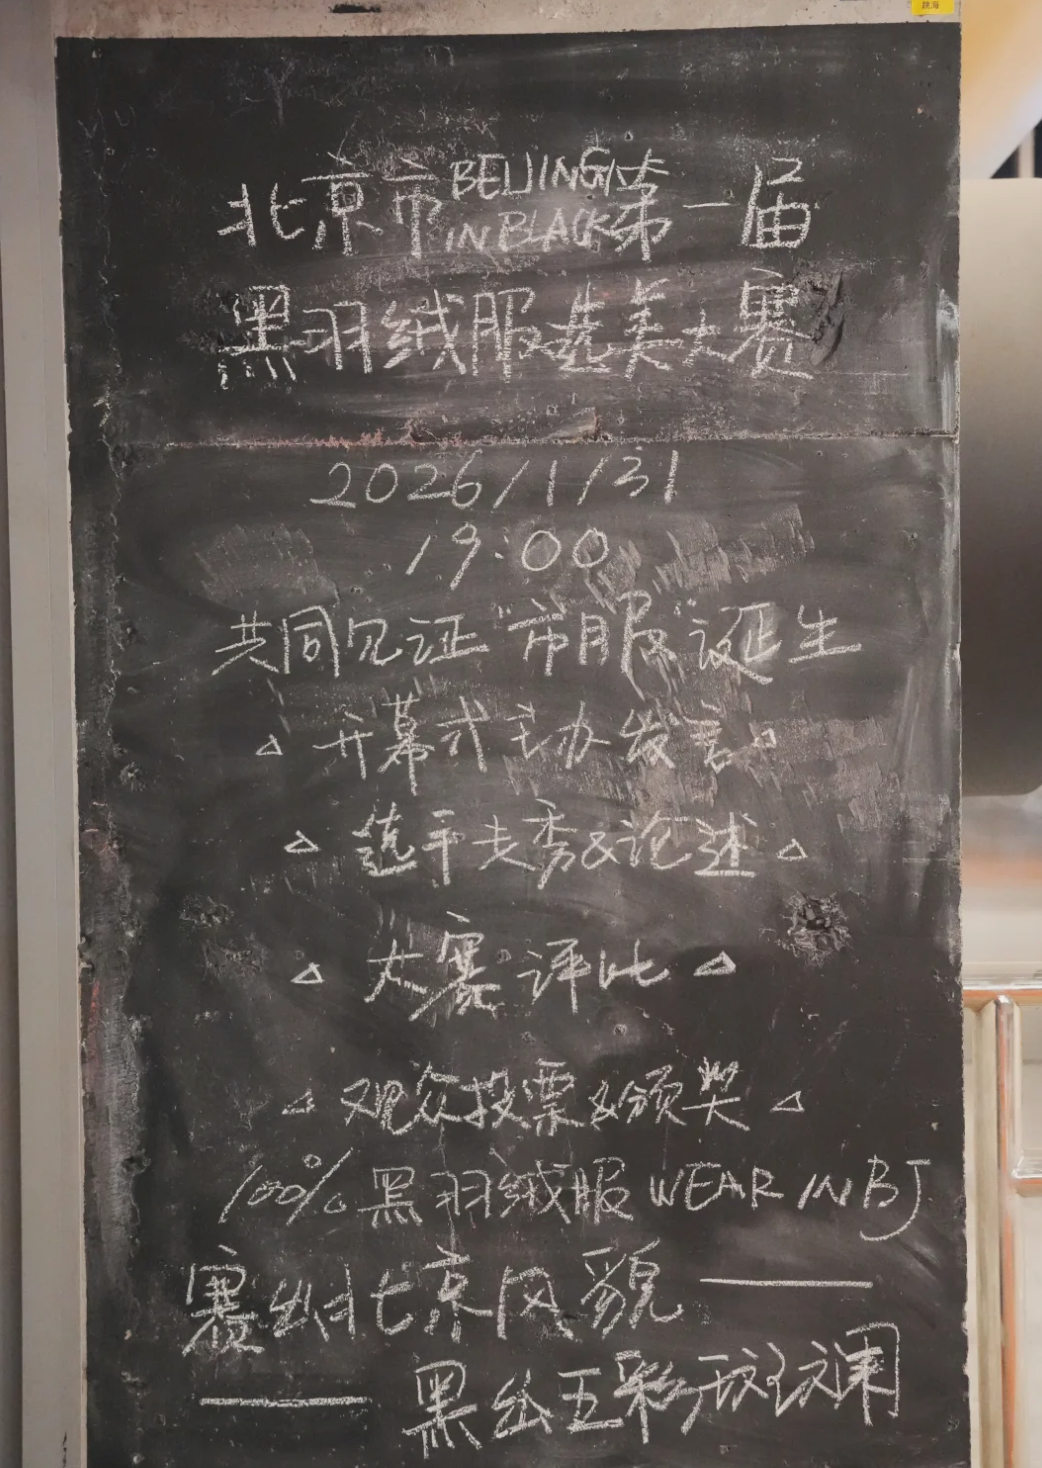 跳海
北京市 BEIJING IN BLACK 第一届
黑羽绒服选美大赛
2026/1/31
19:00
共同见证"市服"诞生
△ 开幕式主办发言 △
△ 选手走秀&论述 △
△ 大赛评比 △
△ 观众投票&颁奖 △
100% 黑羽绒服 WEAR IN BJ
赛出北京风貌 ——
—— 黑出五彩斑斓